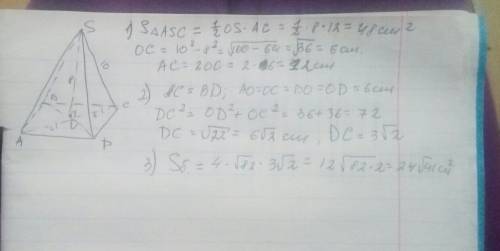 S
10
8
B
C
O
A
D
1) S△ASC = 1/2 OS · AC = 1/2 · 8 · 12 = 48 cm²
OC = 10² - 8² = √100 - 64 = √36 = 6 cm.
AC = 2OC = 2 · 6 = 12 cm
2) AC = BD; AO = OC = BO = OD = 6 cm
DC² = OD² + OC² = 36 + 36 = 72
DC = √72 = 6√2 cm, DC = 3√2
3) Sб. = 4 · √82 · 3√2 = 12√82 · 2 = 24√41 cm²